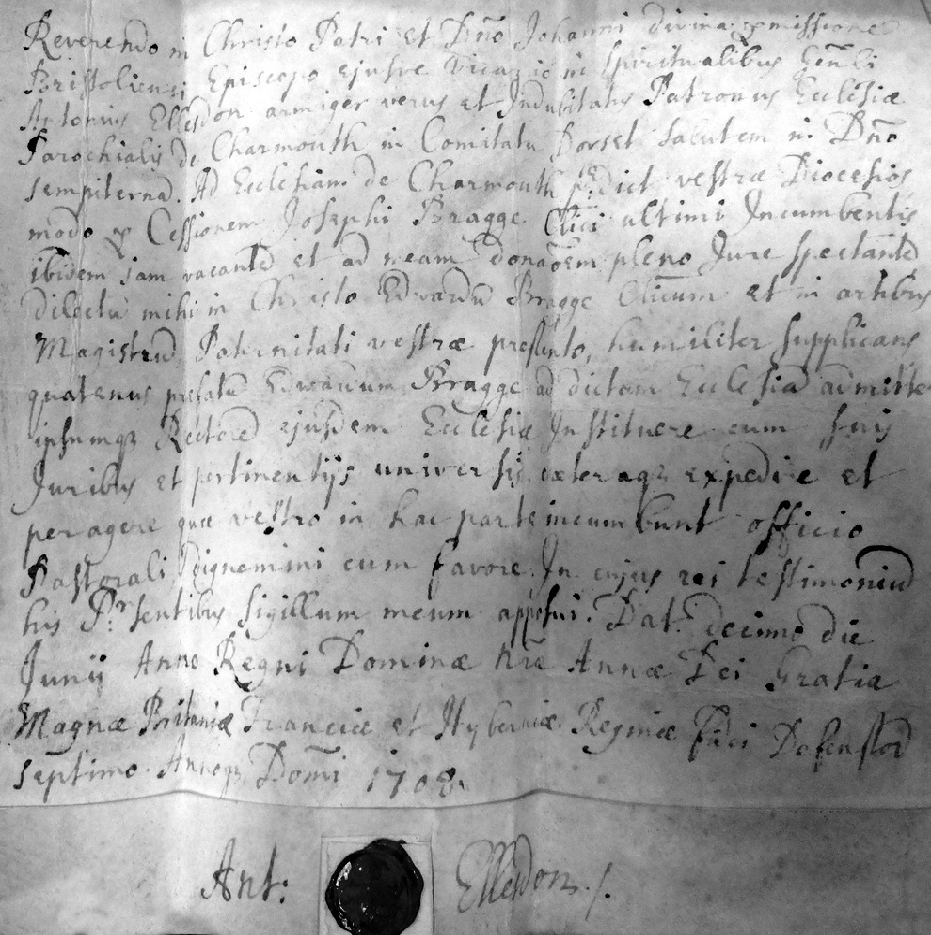 Reverendo in Christo Patri et Dño Johanni divina p missione
Bristoliensi Episcopo ejusve Vicario in Spiritualibus Geñli
Antonius Ellesdon armiger verus et Indubitatus Patronus Ecclesiæ
Parochialis de Charmouth in Comitatu Dorset Salutem in Dño
sempiternā. Ad Ecclesiam de Charmouth pr:dict vestræ Diocesios
modo p Cessionem Josephi Bragge Clici ultimi Incumbentis
ibidem jam vacantē et ad meam donacõem pleno Jure spectantē
dilectū mihi in Christo Edwardū Bragge Clicum et in artibus
Magistrū Paternitati vestræ presento, humiliter supplicans
quatenus prefatū Edwardum Bragge ad dictam Ecclesiā admitte
ipsumqz Rectorē ejusdem Ecclesiæ Instituere cum suis
Juribus et pertinentijs universis cæteraqz expedire et
peragere quæ vestro in hac parte incumbunt officio
Pastorali Dignemini cum favore. In cujus rei testimoniū
his Pr:sentibus sigillum meum apposui. Dat. decimo die
Junij Anno Regni Dominæ nr̃æ Annæ Dei Gratia
Magnæ Britaniæ Franciæ et Hyberniæ Reginæ fidei Defensor
septimo Annoqz Domi 1708.
Ant: Ellesdon./.